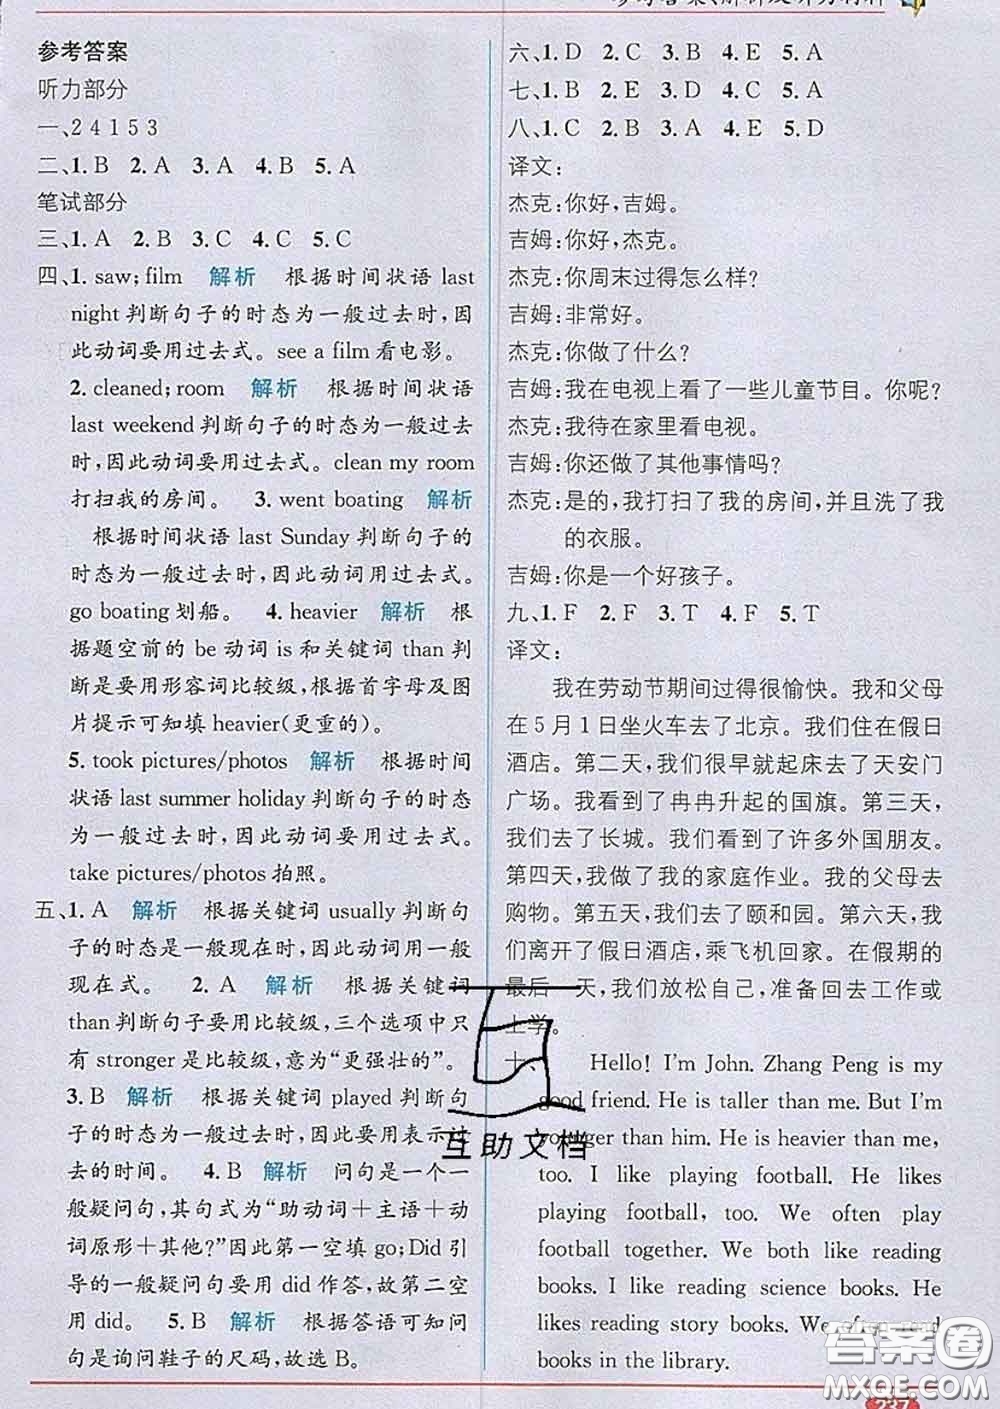 参考答案
听力部分
一、2 4 1 5 3
二、1. B 2. A 3. A 4. B 5. A
笔试部分
三、1. A 2. B 3. C 4. C 5. C
四、1. saw; film 解析 根据时间状语 last
night 判断句子的时态为一般过去时,因
此动词要用过去式。see a film 看电影。
2. cleaned; room 解析 根据时间状语
last weekend 判断句子的时态为一般过去
时,因此动词要用过去式。clean my room
打扫我的房间。 3. went boating 解析
根据时间状语 last Sunday 判断句子的
时态为一般过去时,因此动词用过去式。
go boating 划船。 4. heavier 解析 根
据题空前的 be 动词 is 和关键词 than 判
断是要用形容词比较级,根据首字母及图
片提示可知填 heavier(更重的)。
5. took pictures/photos 解析 根据时间
状语 last summer holiday 判断句子的时态
为一般过去时,因此动词要用过去式。
take pictures/photos 拍照。
五、1. A 解析 根据关键词 usually 判断句
子的时态是一般现在时,因此动词用一般
现在式。 2. A 解析 根据关键词
than 判断句子要用比较级,三个选项中只
有 stronger 是比较级,意为“更强壮的”。
3. B 解析 根据关键词 played 判断句
子的时态为一般过去时,因此要用表示过
去的时间。 4. B 解析 问句是一个一
般疑问句,其句式为“助动词+主语+动
词原形+其他?”因此第一空填 go;Did 引
导的一般疑问句要用 did 作答,故第二空
用 did。 5. B 解析 根据答语可知问
句是询问鞋子的尺码,故选 B。
六、1. D 2. C 3. B 4. E 5. A
七、1. B 2. E 3. D 4. C 5. A
八、1. C 2. B 3. A 4. E 5. D
译文:
杰克:你好,吉姆。
吉姆:你好,杰克。
杰克:你周末过得怎么样?
吉姆:非常好。
杰克:你做了什么?
吉姆:我在电视上看了一些儿童节目。你呢?
杰克:我待在家里看电视。
吉姆:你还做了其他事情吗?
杰克:是的,我打扫了我的房间,并且洗了我
的衣服。
吉姆:你是一个好孩子。
九、1. F 2. F 3. T 4. F 5. T
译文:
我在劳动节期间过得很愉快。我和父母
在 5 月 1 日坐火车去了北京。我们住在假日
酒店。第二天,我们很早就起床去了天安门
广场。我看到了冉冉升起的国旗。第三天,
我们去了长城。我们看到了许多外国朋友。
第四天,我做了我的家庭作业。我的父母去
购物。第五天,我们去了颐和园。第六天,我
们离开了假日酒店,乘飞机回家。在假期的
最后一天,我们放松自己,准备回去工作或
上学。
十、 Hello! I'm John. Zhang Peng is my
good friend. He is taller than me. But I'm
younger than him. He is heavier than me,
too. I like playing football. He likes
playing football, too. We often play
football together. We both like reading
books. I like reading science books. He
likes reading story books. We often read
books in the library.
互助文档
答案圈
MXQE.COM
237